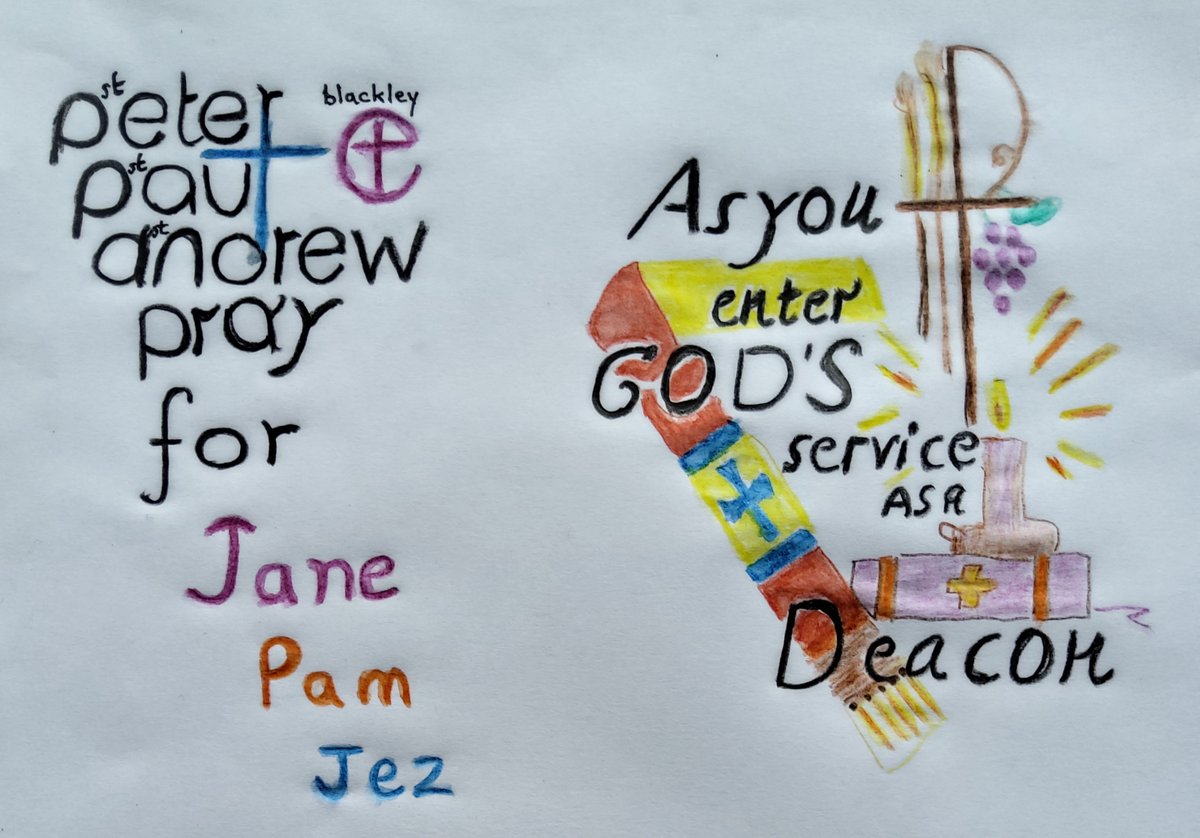 st peter
blackley
st paul
st andrew
pray
for
Jane
Pam
Jez
As you
enter
GOD'S
service
AS A
Deacon